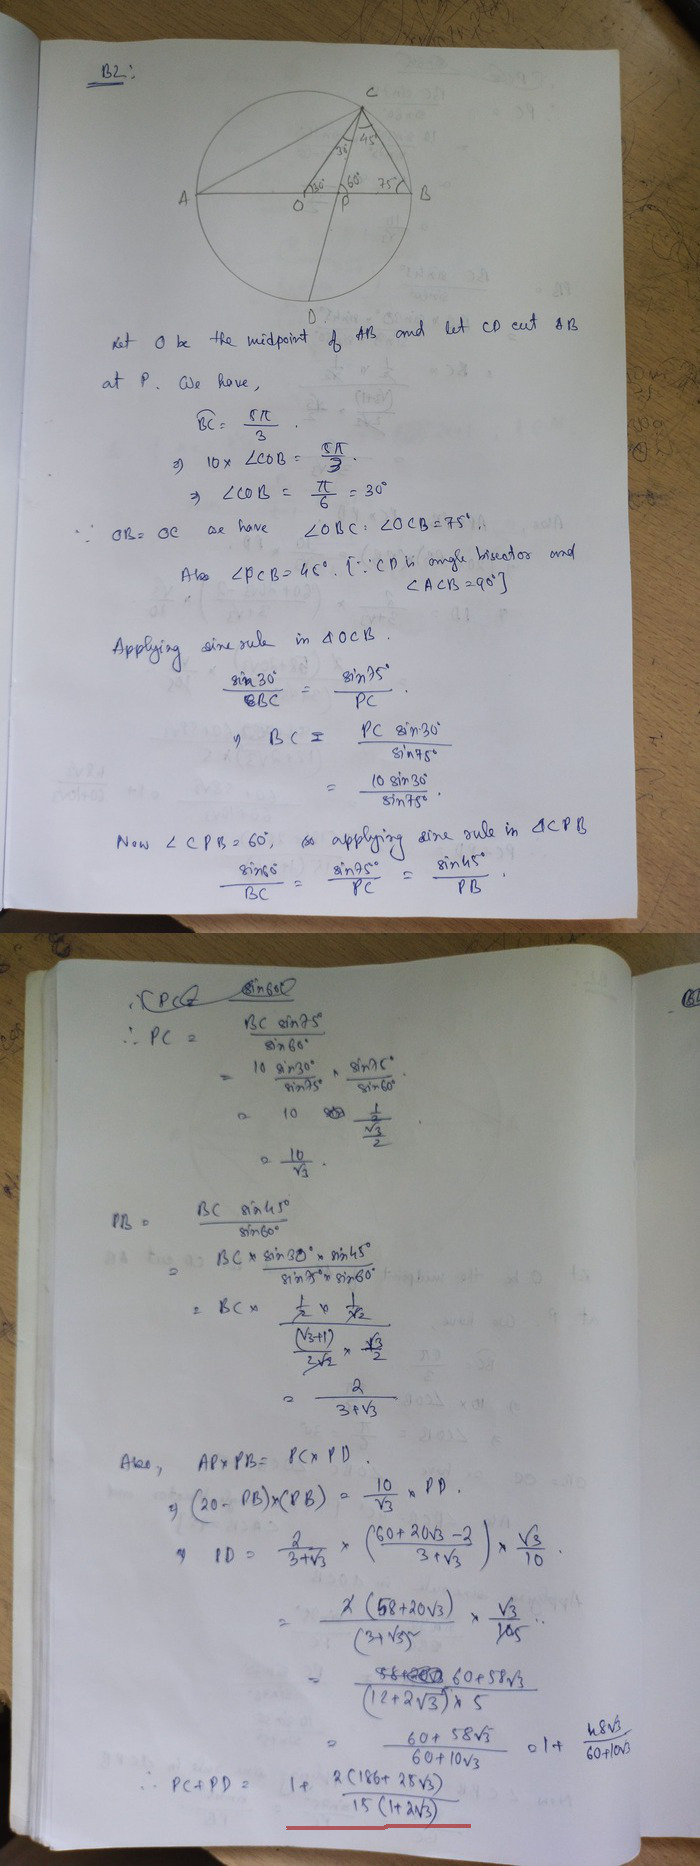 B2:
C
30° 45°
A 30° 60° 75° B
O P
D
Let O be the midpoint of AB and let CD cut AB
at P. We have,
BC = 5π/3 .
⇒ 10 × ∠COB = 5π/3 .
⇒ ∠COB = π/6 = 30°
∵ OB = OC we have ∠OBC = ∠OCB = 75°.
Also ∠PCB = 45°. [∵ CD is angle bisector and
∠ACB = 90°]
Applying sine rule in ΔOCB.
sin30°/BC = sin75°/PC .
⇒ BC = PC sin30°/sin75°
= 10 sin30°/sin75° .
Now ∠CPB = 60°, so applying sine rule in ΔCPB
sin60°/BC = sin75°/PC = sin45°/PB .
∴ PC = BC sin75°/sin60°
= 10 sin30°/sin75° × sin75°/sin60° .
= 10 (1/2)/(√3/2) .
= 10/√3 .
PB = BC sin45°/sin60°
= BC × sin30° × sin45°/sin75° × sin60°
= BC × (1/2 × 1/√2)/((√3+1)/2√2 × √3/2)
= 2/(3+√3)
Also, AP × PB = PC × PD .
⇒ (20 - PB) × (PB) = 10/√3 × PD .
⇒ PD = 2/(3+√3) × ((60+20√3-2)/(3+√3)) × √3/10 .
= 2(58+20√3)/(3+√3)² × √3/105 .
= 60+58√3/(12+2√3) × 5
= 60+58√3/60+10√3 = 1 + 48√3/60+10√3
∴ PC + PD = 1 + 2(186+25√3)/15(1+2√3)